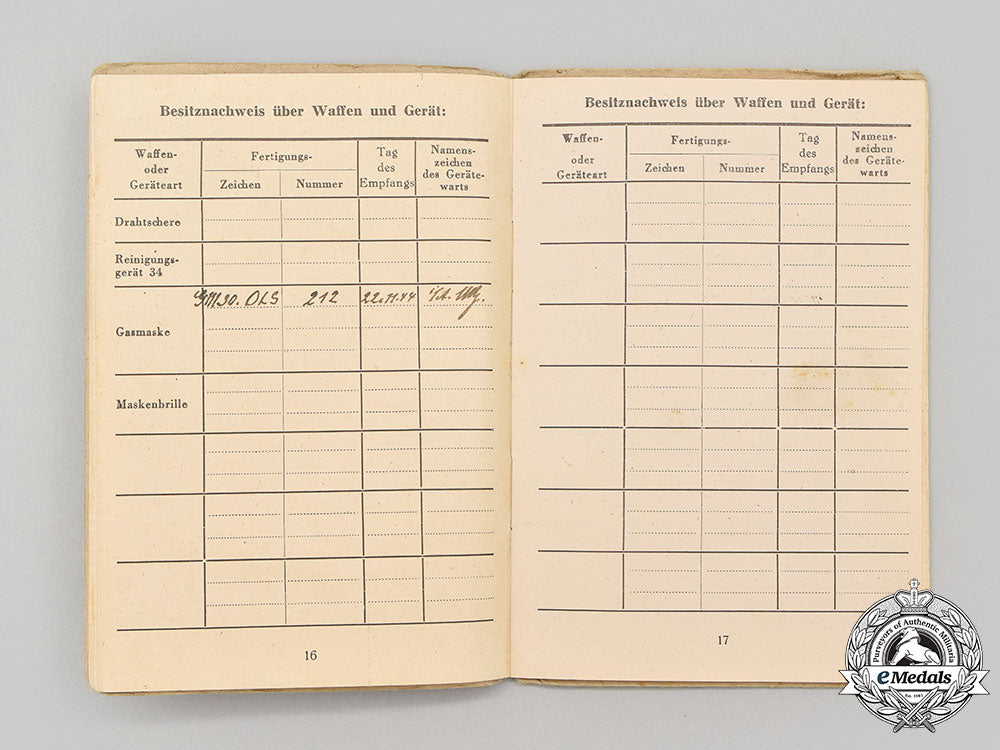 Besitznachweis über Waffen und Gerät:
Waffen-
oder
Geräteart
Fertigungs-
Zeichen
Nummer
Tag
des
Empfangs
Namens-
zeichen
des Geräte-
warts
Drahtschere
Reinigungs-
gerät 34
Gasmaske
GM30. OLS 212 22.11.44
Maskenbrille
16
Besitznachweis über Waffen und Gerät:
Waffen-
oder
Geräteart
Fertigungs-
Zeichen
Nummer
Tag
des
Empfangs
Namens-
zeichen
des Geräte-
warts
17
Purveyors of Authentic Militaria
eMedals